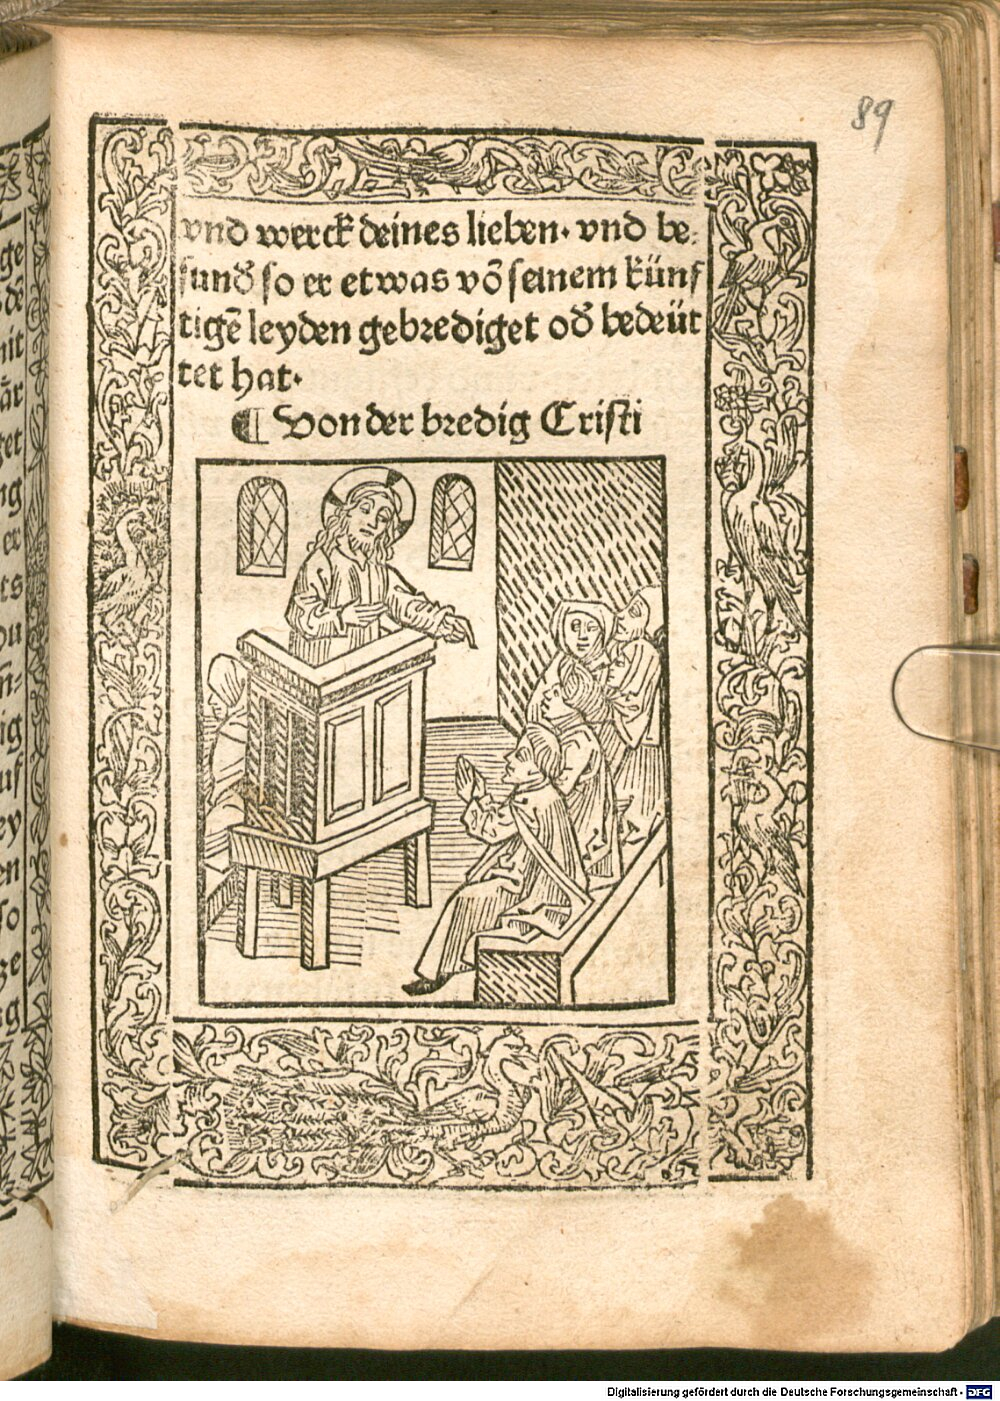 89
vnd werck deines lieben. vnd be-
sunđ so er etwas võ seinem künf
tigẽ leyden gebrediget ođ bedeüt
tet hat.
¶ Von der bredig Cristi
ge
nit
ar
tet
ng
er
ts
ou
ig
uf
ey
en
so
ze
sg
Digitalisierung gefördert durch die Deutsche Forschungsgemeinschaft - DFG